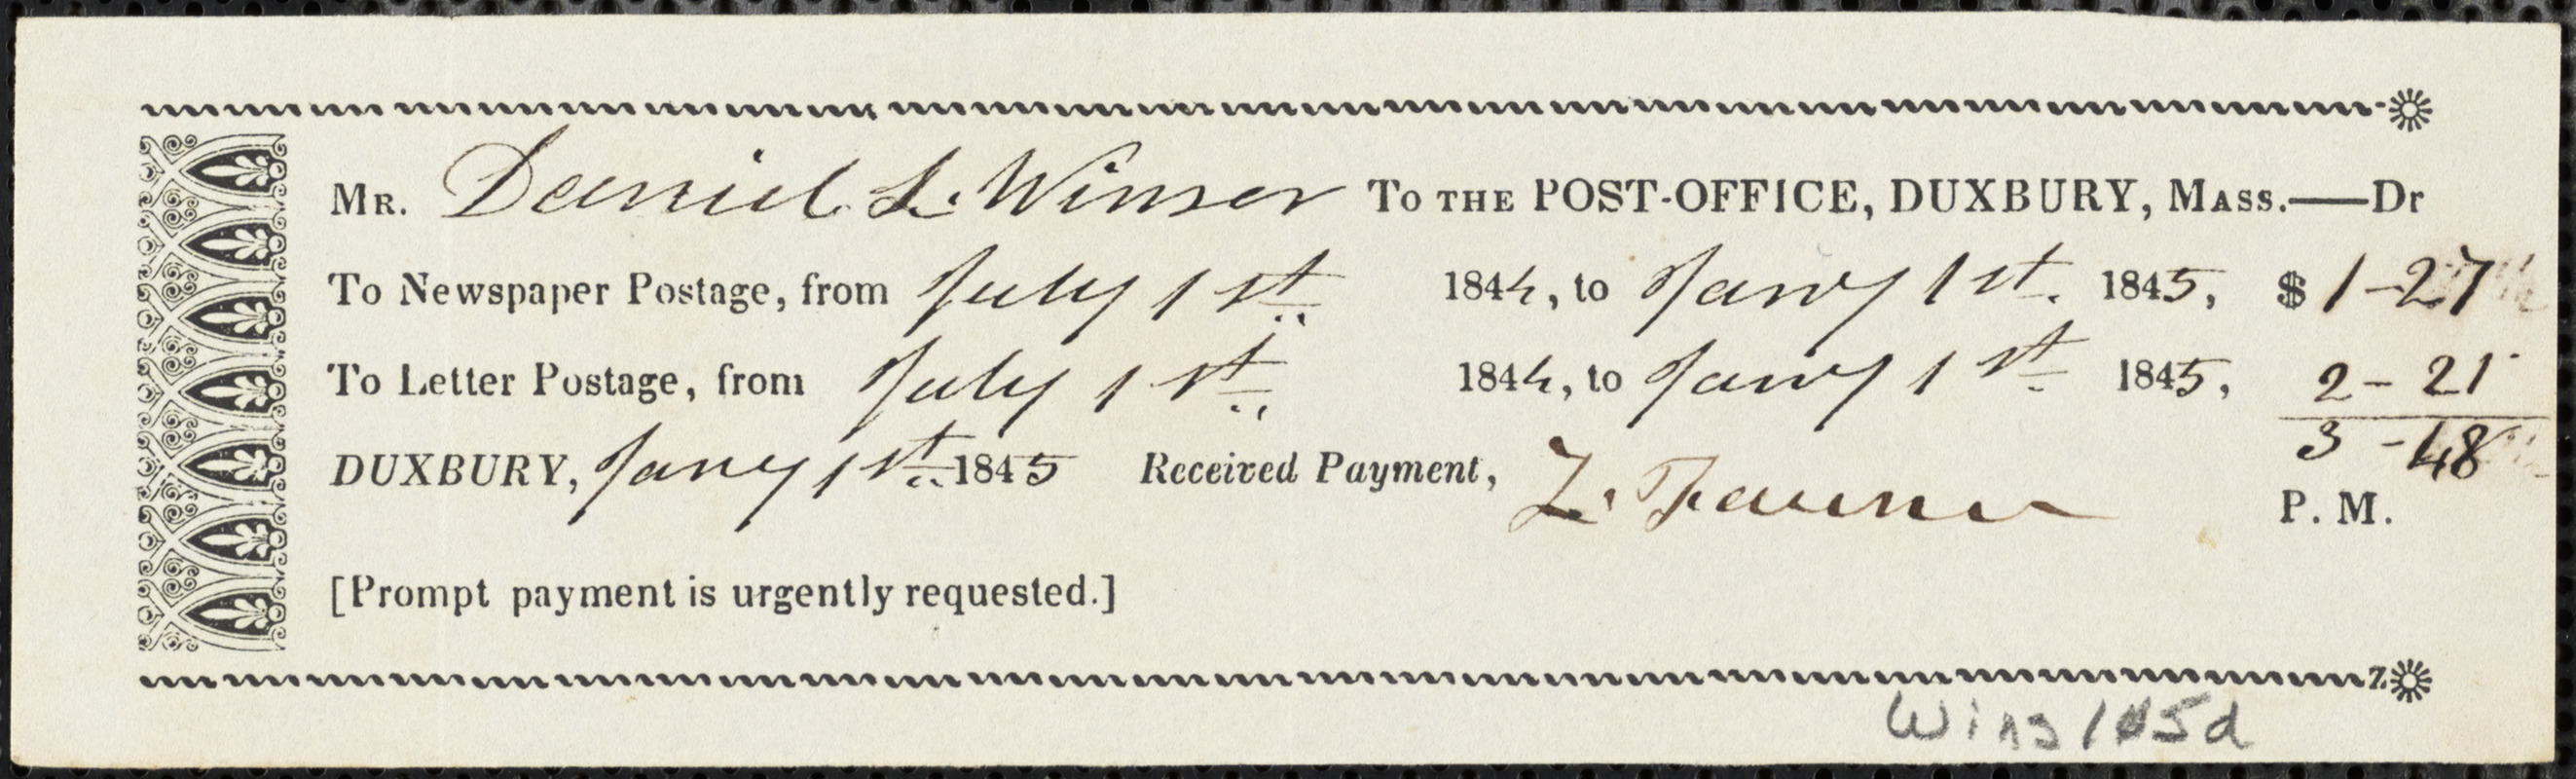 MR. Daniel L. Winsor To THE POST-OFFICE, DUXBURY, MASS.——Dr
To Newspaper Postage, from July 1st 1844, to Jany 1st. 1845, $ 1-27
To Letter Postage, from July 1st 1844, to Jany 1st 1845, 2-21
3-48
DUXBURY, Jany 1st 1845 Received Payment, Z. Faunce P. M.
[Prompt payment is urgently requested.]